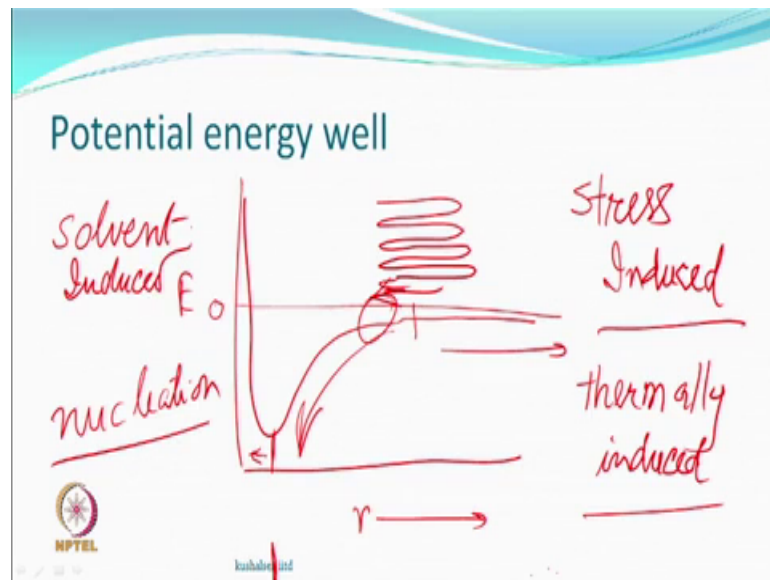 Potential energy well
Solvent
Induced
E
0
nucleation
Stress
Induced
thermally
induced
r
NPTEL